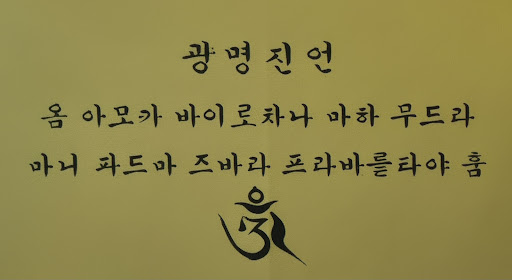 광명진언
옴 아모카 바이로차나 마하 무드라
마니 파드마 즈바라 프라바릍타야 훔
ༀ